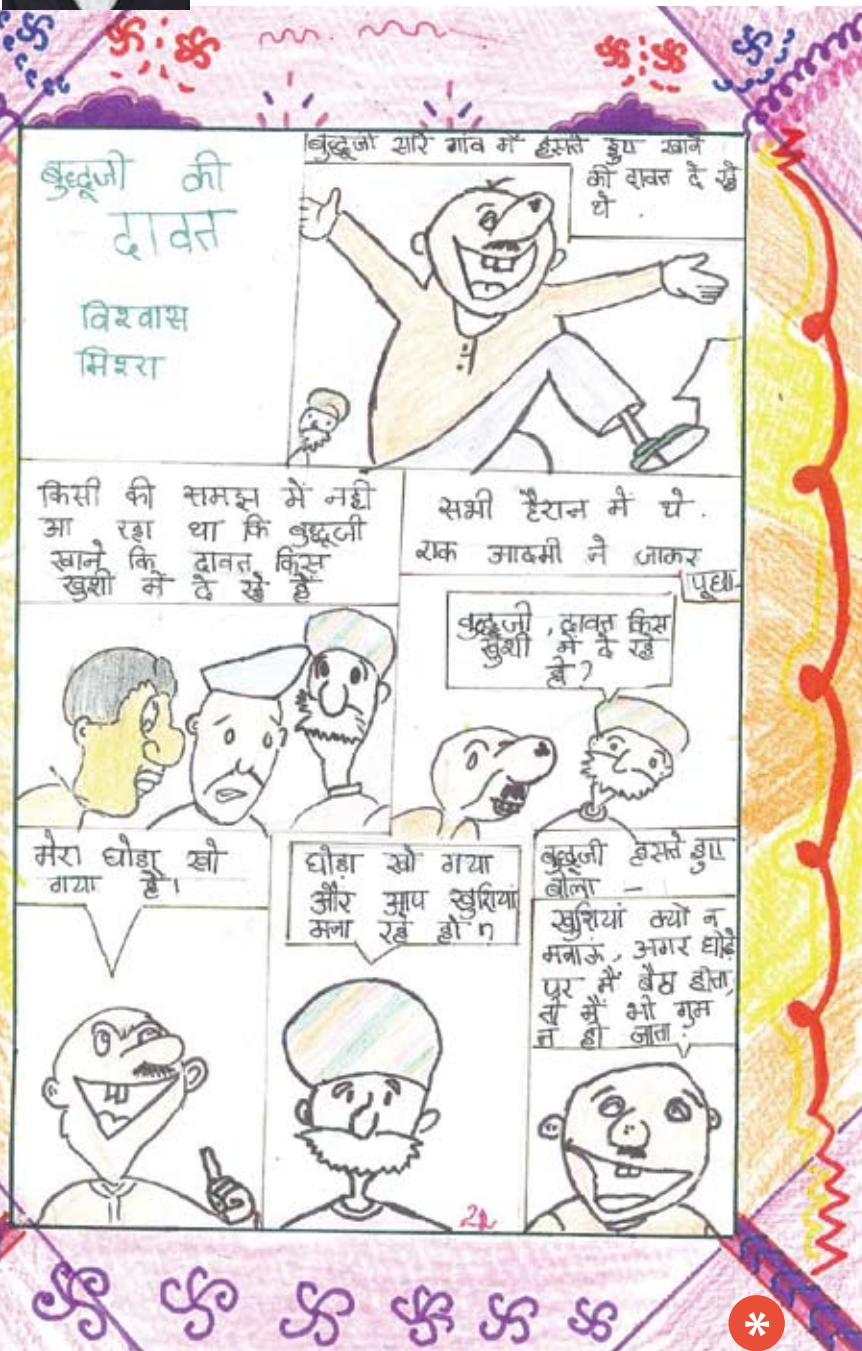 बुद्धूजी की
दावत
विश्वास
मिश्रा
बुद्धूजी सारे गांव में हंसते हुए खाने
की दावत दे रहे
थे .
किसी की समझ में नही
आ रहा था कि बुद्धूजी
खाने कि दावत किस
खुशी में दे रहे हैं
सभी हैरान में थे .
एक आदमी ने जाकर
पूछा-
बुद्धूजी , दावत किस
खुशी में दे रहे
हो ?
मेरा घोड़ा खो
गया है।
घोड़ा खो गया
और आप खुशियां
मना रहे हो ?
बुद्धूजी हंसते हुए
बोला -
खुशियां क्यों न
मनाऊं , अगर घोड़े
पर मैं बैठा होता,
तो मैं भी गुम
न हो जाता .